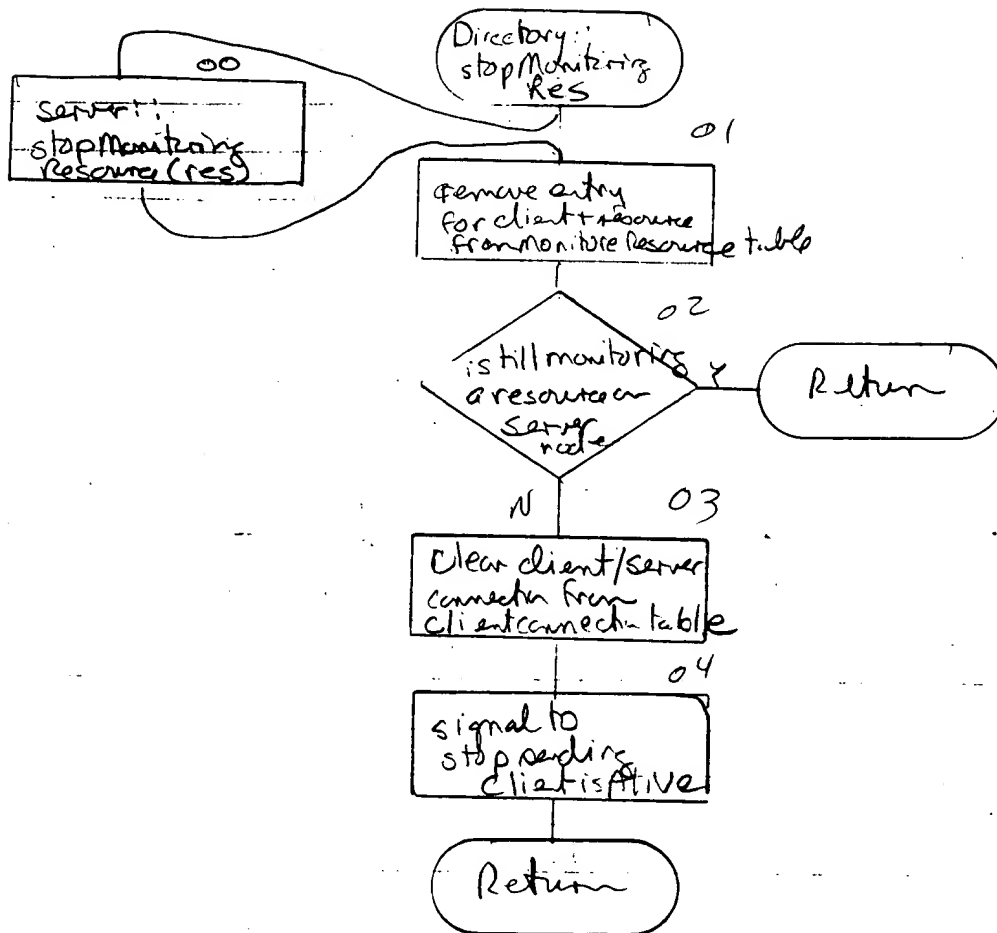 Directory::
stopMonitoring
Res
00
server::
stopMonitoring
Resource(res)
01
remove entry
for client + resource
from Moniture Resource table
02
is still monitoring
a resource on
server
node
Y
Return
N
03
Clear client/server
connection from
clientconnection table
04
signal to
stop sending
ClientisAlive
Return